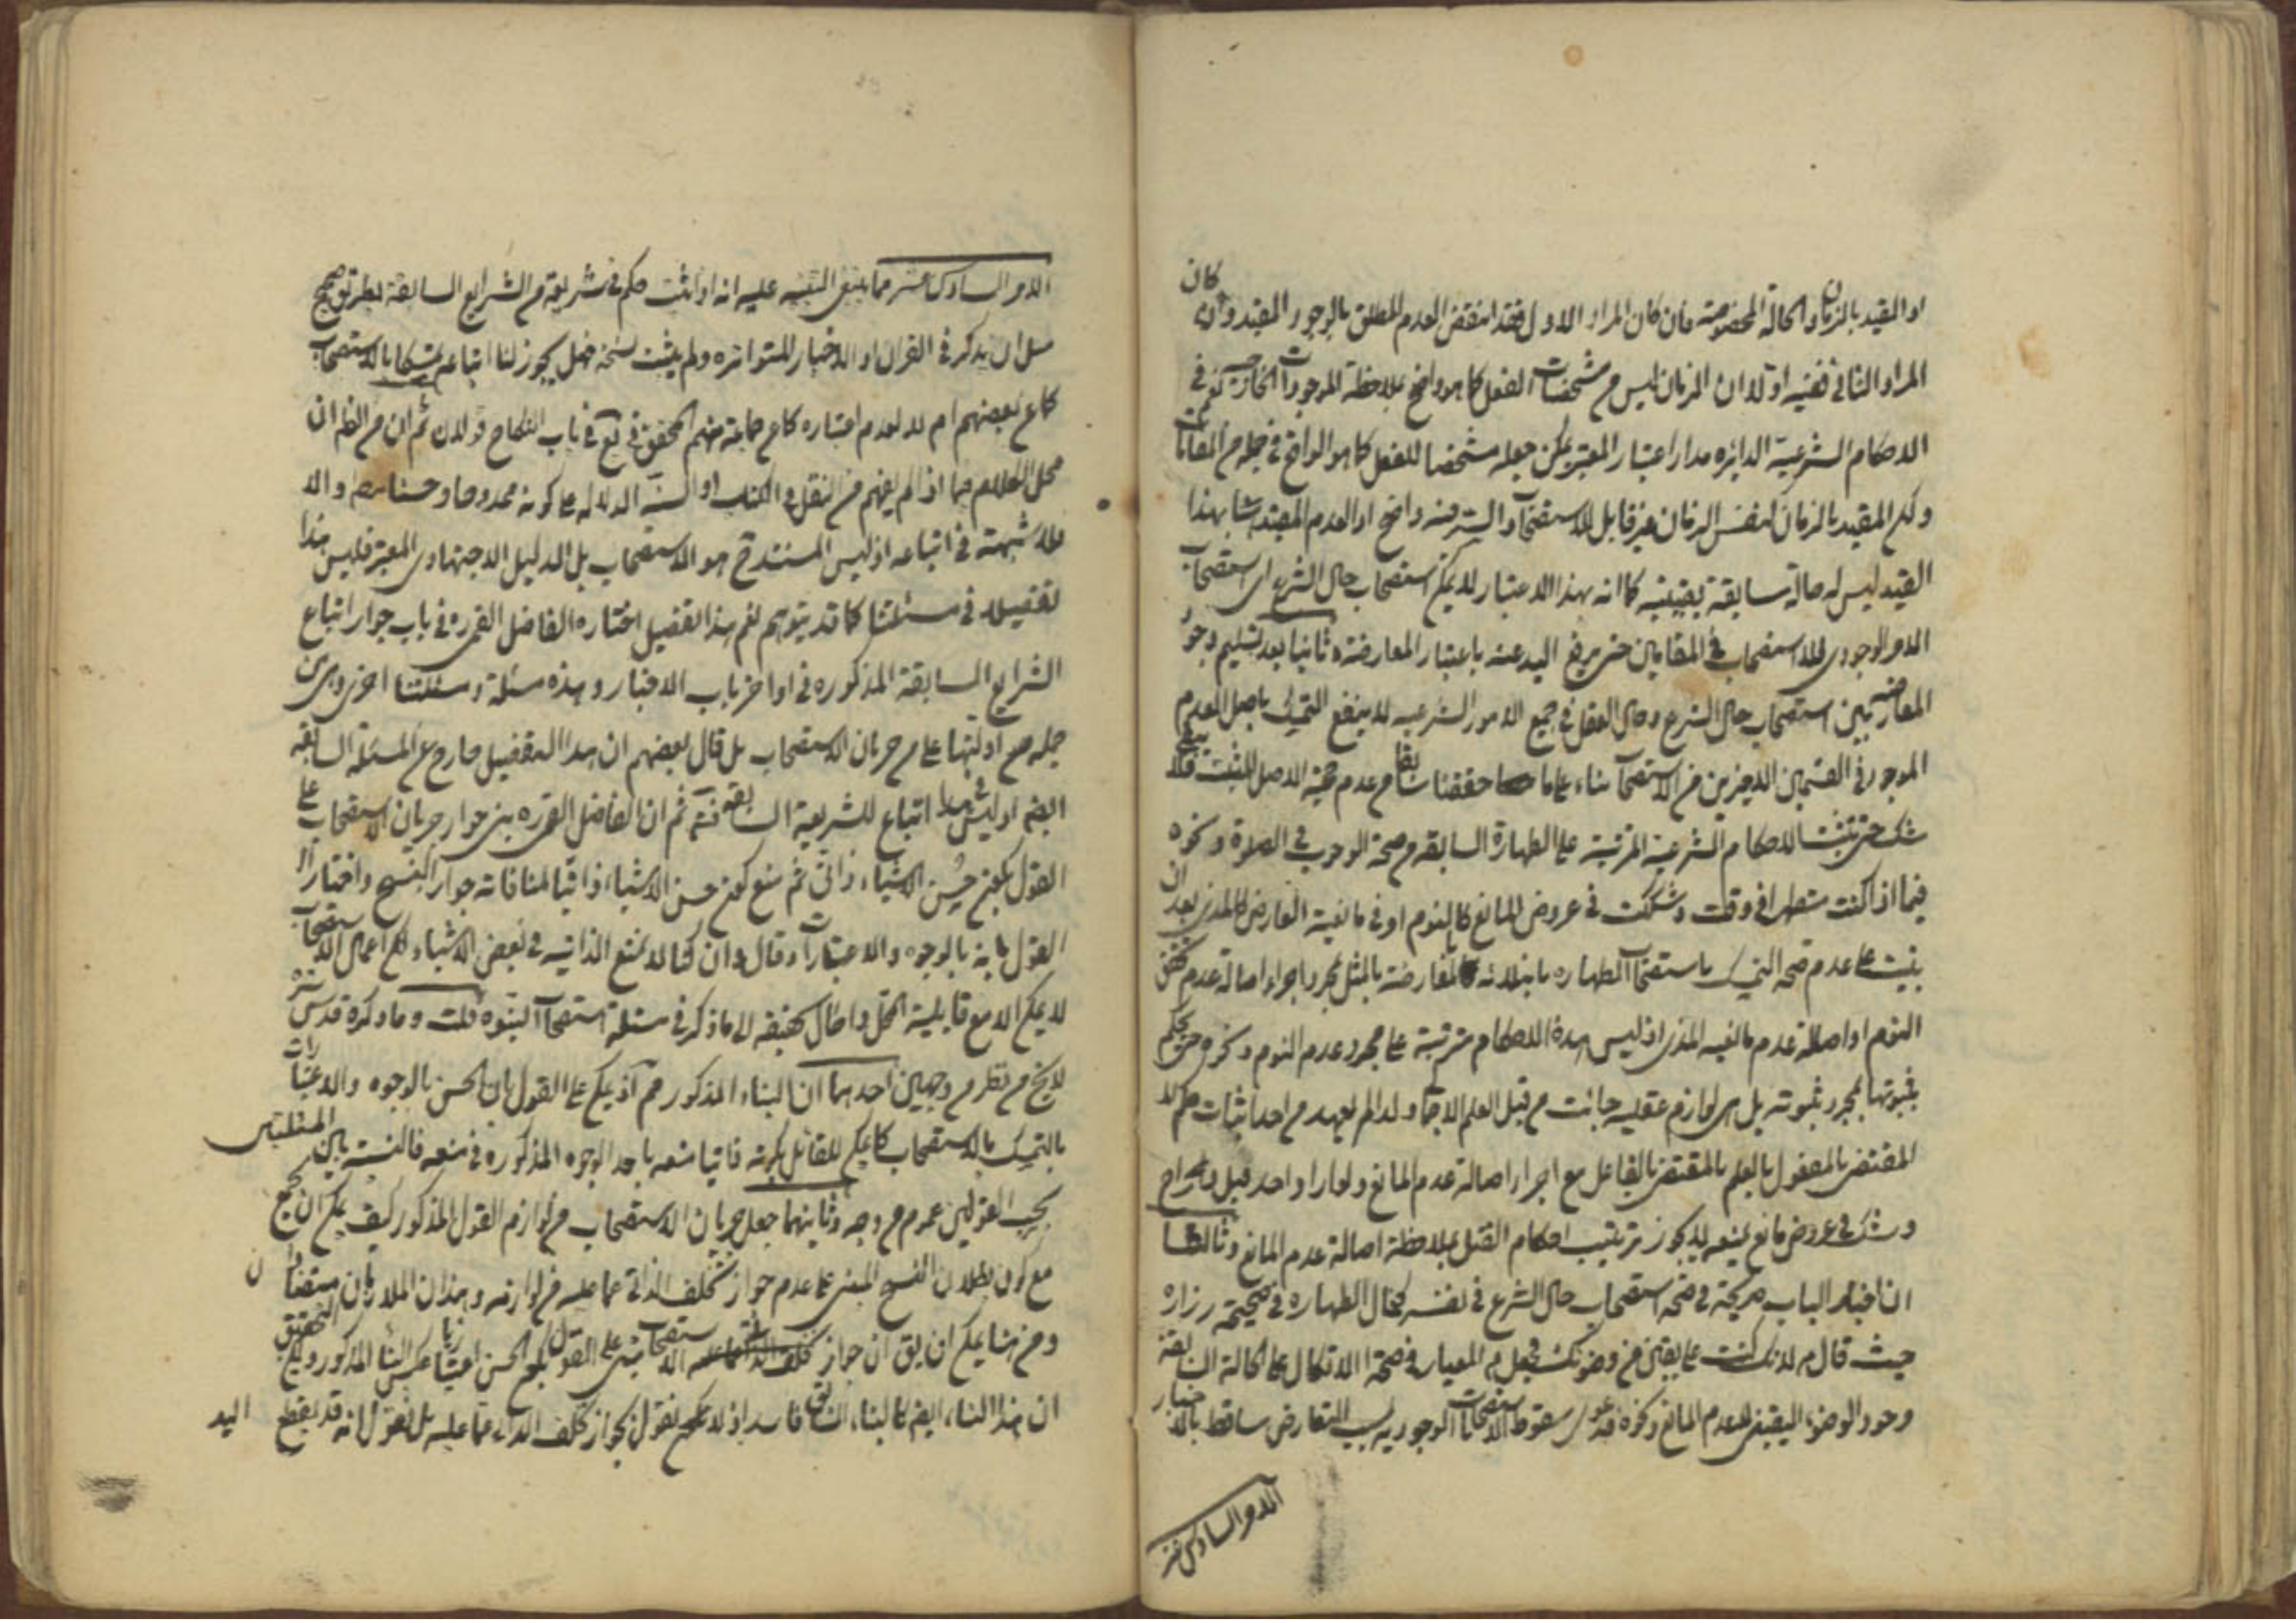 او المقيد بالزمان والحالة المخصوصة فان كان المراد الاول فقد انتقض العدم المطلق بالوجود المقيد وان كان
المراد الثانى ففيه اولا ان الزمان ليس من مشخصات الفعل كما هو واضح بملاحظة الموجودات الخارجية نعم فى
الاحكام الشرعية الدايره مدار اعتبار المعتبر يمكن جعله مشخصا للفعل كما هو الواقع فى جملة من المقامات
المقيد بالزمان كنفس الزمان غير قابل للاستصحاب والسر فيه واضح او العدم المقيد بهذا
القيد ليس له حالة سابقة يقينية كما انه بهذا الاعتبار لا يمكن استصحاب حال الشرع اى استصحاب
الامر الوجودى للاستصحاب فى المقامين حتى يرفع اليد عنه باعتبار المعارضة وثانيا بعد تسليم وجود
المعارضة بين استصحاب حال الشرع وحال العقل فى جميع الامور الشرعيه لا ينفع التمسك باصل العدم
الموجود فى القسمين الاخيرين من الاستصحاب بناء على ما حققنا سابقا من عدم حجية الاصل المثبت فلا يبقى
شك حتى يثبت الاحكام الشرعية المترتبة على الطهارة السابقه من صحة الوجوب فى الصلوة ونحوه
فيما اذا كنت متطهرا فى وقت وشككت فى عروض المانع كالنوم او فى مانعية العارض كالمذى بعد ان
بنيت على عدم صحة التمسك باستصحاب الطهاره بابتلائه بالمعارضة بالمثل بمجرد اجراء اصالة عدم تحقق
النوم او اصالة عدم مانعيه المذى اذ ليس هذه الاحكام مترتبة على مجرد عدم النوم ونحوه حتى يحكم
بثبوتها بمجرد ثبوته بل هى لوازم عقليه جائت من قبل العلم الاجمالى ولذا لم يعهد من احد اثبات حكم
المقتضى بالمفعول بالعلم بالمقتضى بالفاعل مع اجراء اصالة عدم المانع ولو اراد احد قتل
وشك فى عروض مانع يمنعه لا يجوز ترتيب احكام القتل بملاحظة اصالة عدم المانع وثالثا
ان اخبار الباب صريحة فى صحة استصحاب حال الشرع فى نفسه كحال الطهاره فى صحيحة زراره
حيث قال م لانك كنت على يقين من وضوئك فجعل م المعيار فى صحة الاتكال على الحالة السابقة
وجود الوضوء اليقينى لعدم المانع ونحوه فدعوى سقوط الاستصحابات الوجودية بسبب التعارض ساقط بالاخبار
الامر السادس عشر
الامر السادس عشر مما ينبغى التنبيه عليه انه اذا ثبت حكم فى شريعة من الشرايع السابقة بطريق صحيح
مثل ان يذكر فى القران او الاخبار المتواتره ولم يثبت نسخه فهل يجوز لنا اتباعه تمسكا بالاستصحاب
كما عن بعضهم ام لا لعدم اعتباره كما عن جماعة منهم المحقق فى يع فى باب النكاح قولان ثم ان من الظ ان
محل الكلام فيما اذا لم يفهم من النقل فى الكتاب او السنه الدلاله على كونه ممدوحا وحسنا والا
فلا شبهة فى اتباعه اذ ليس المستند ح هو الاستصحاب بل الدليل الاجتهادى المعتبر فليس هذا
تفصيلا فى مسئلتنا كما قد يتوهم نعم هذا التفصيل اختاره الفاضل القمى ره فى باب جواز اتباع
الشرايع السابقة المذكوره فى اواخر باب الاخبار وهذه مسئلة ومسئلتنا اخرى
جمله من ادلتها على جريان الاستصحاب بل قال بعضهم ان هذا التفصيل خارج عن المسئلة السابقه
ايضا اذ ليس هذا اتباع للشريعة السابقة ثم ان الفاضل القمى ره بنى جواز جريان الاستصحاب على
القول بكون حسن الاشياء ذاتى ثم منع كون حسن الاشياء ذاتيا لمنافاته جواز النسخ واختار
القول بانه بالوجوه والاعتبارات وقال وان كنا لا نمنع الذاتيه فى بعض الاشياء لكن اعمال الاستصحاب
لا يمكن الا مع قابلية المحل واحال تحقيقه الى ما ذكر فى مسئلة استصحاب النبوه قلت وما ذكره قدس سره
لا يخ من نظر من وجهين احدهما ان البناء المذكور مم اذ يمكن على القول بان الحسن بالوجوه والاعتبارات
بالتمسك بالاستصحاب كما يمكن للقائل بكونه ذاتيا منعه باحد الوجوه المذكوره فى منعه فالنسبة بين المسئلتين
بحسب القولين عموم من وجه وثانيهما جعل جريان الاستصحاب من لوازم القول المذكور كيف يمكن ان يجمع
مع كون بطلان النسخ المبنى على عدم جواز تخلف الذاتى عما عليه من لوازمه وهذان اللازمان متنافيان
ومن هنا يمكن ان يق ان جواز الاستصحاب مبنى على القول بكون الحسن اعتباريا عكس البناء المذكور ولكن التحقيق
ان هذا البناء ايضا كالبناء السابق فاسد اذ لا نقول بجواز تخلف الذاتى عما عليه بل نقول انه قد يقطع
اليد